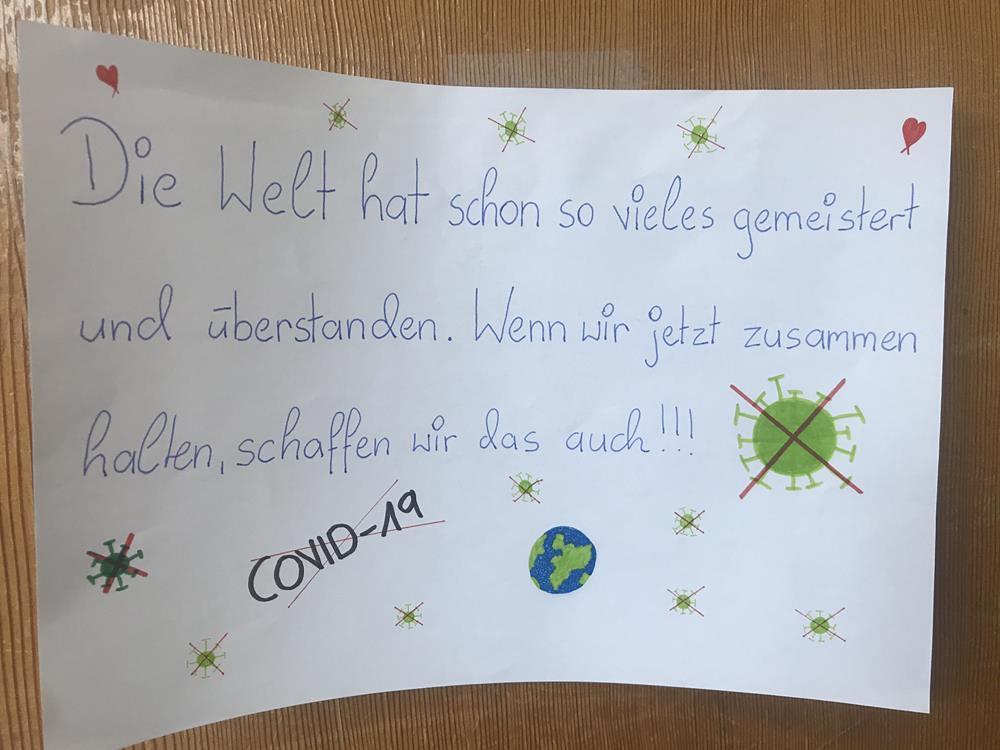 Die Welt hat schon so vieles gemeistert
und überstanden. Wenn wir jetzt zusammen
halten, schaffen wir das auch!!!
COVID-19